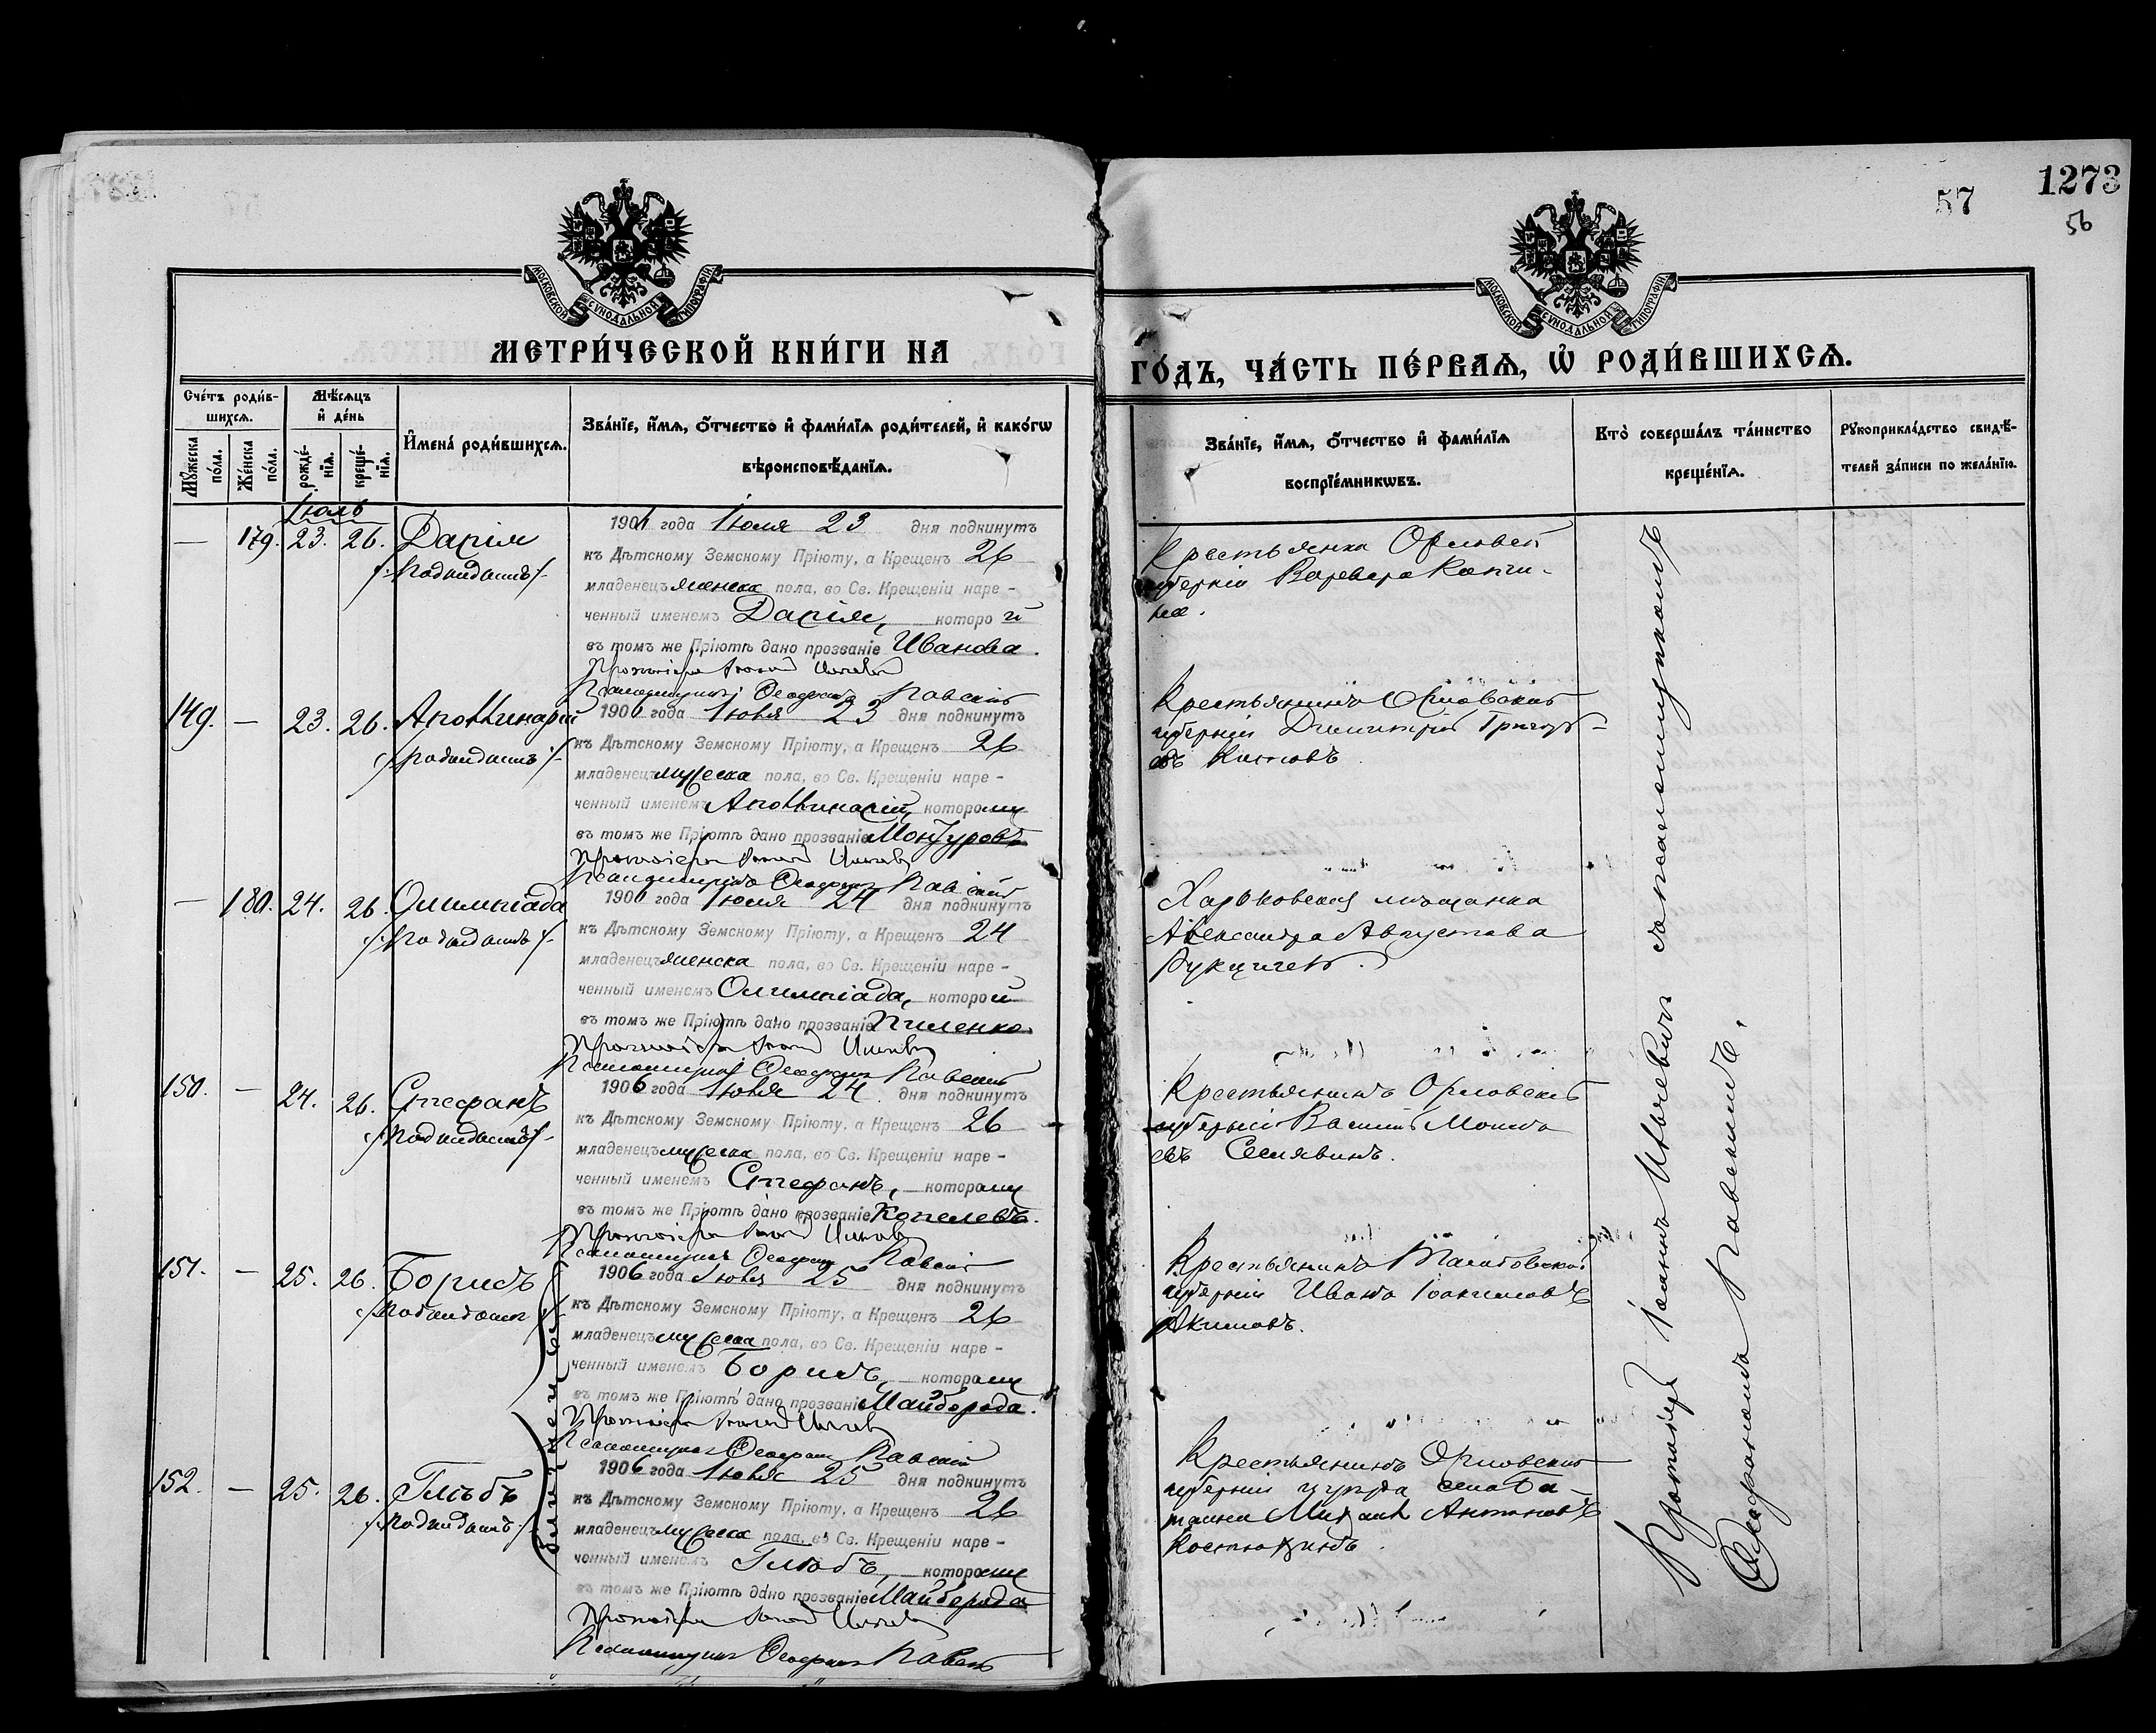 1273
57
56
МОСКОВСКОЙ СУНОДАЛЬНОЙ ТИПОГРАФІИ
МОСКОВСКОЙ СУНОДАЛЬНОЙ ТИПОГРАФІИ
МЕТРИ́ЧЕСКОЙ КНИ́ГИ НА
ГО́ДЪ, ЧА́СТЬ ПЕ́РВАѦ, Ѡ҆ РОДИ́ВШИХСѦ.
Сче́тъ роди́в-
шихсѧ.
Мꙋ́жеска по́ла.
Же́нска по́ла.
Мѣ́сѧцъ
и҆ де́нь
рожде́-
нїѧ.
креще́-
нїѧ.
И҆мена̀ роди́вшихсѧ.
Зва́нїе, и҆́мѧ, ѻ҆́тчество и҆ фами́лїѧ роди́телей, и҆ како́гѡ
вѣроисповѣ́данїѧ.
Зва́нїе, и҆́мѧ, ѻ҆́тчество и҆ фами́лїѧ
воспрїе́мникѡвъ.
Кто̀ соверша́лъ та́инство
креще́нїѧ.
Рꙋкоприкла́дство свидѣ́-
телей за́писи по жела́нїю.
Іюль
— 179. 23. 26. Дарія
/:подкидышъ:/
1906 года Іюля 23 дня подкинутъ
къ Дѣтскому Земскому Пріюту, а Крещенъ 26
младенецъ женска пола, во Св. Крещеніи наре -
ченный именемъ Дарія, которой
въ томъ же Пріютѣ дано прозваніе Иванова.
Протоіерей Іоаннъ
Псаломщикъ Феофанъ Павскій
Крестьянка Орловской
губерніи Варвара
149. — 23. 26. Аполлинарій
/:подкидышъ:/
1906 года Іюля 23 дня подкинутъ
къ Дѣтскому Земскому Пріюту, а Крещенъ 26
младенецъ мужеска пола, во Св. Крещеніи наре -
ченный именемъ Аполлинарій, которому
въ томъ же Пріютѣ дано прозваніе
Протоіерей Іоаннъ
Псаломщикъ Феофанъ Павскій
Крестьянинъ Орловской
губерніи Димитрій Григорь-
евъ
— 180. 24. 26. Олимпіада
/:подкидышъ:/
1906 года Іюля 24 дня подкинутъ
къ Дѣтскому Земскому Пріюту, а Крещенъ 24
младенецъ женска пола, во Св. Крещеніи наре -
ченный именемъ Олимпіада, которой
въ томъ же Пріютѣ дано прозваніе Пиленко.
Протоіерей Іоаннъ
Псаломщикъ Феофанъ Павскій
Харьковская мѣщанка
Александра Августова
150. — 24. 26. Стефанъ
/:подкидышъ:/
1906 года Іюля 24 дня подкинутъ
къ Дѣтскому Земскому Пріюту, а Крещенъ 26
младенецъ мужеска пола, во Св. Крещеніи наре -
ченный именемъ Стефанъ, которому
въ томъ же Пріютѣ дано прозваніе Копелевъ.
Протоіерей Іоаннъ
Псаломщикъ Феофанъ Павскій
Крестьянинъ Орловской
губерніи Василій
евъ Сенявинъ.
151. — 25. 26. Борисъ
/:подкидышъ:/
близнецы
1906 года Іюля 25 дня подкинутъ
къ Дѣтскому Земскому Пріюту, а Крещенъ 26
младенецъ мужеска пола, во Св. Крещеніи наре -
ченный именемъ Борисъ, которому
въ томъ же Пріютѣ дано прозваніе Майборода.
Протоіерей Іоаннъ
Псаломщикъ Феофанъ Павскій
Крестьянинъ
губерніи Иванъ Іоакимовъ
Акимовъ.
152. — 25. 26. Глѣбъ
/:подкидышъ:/
1906 года Іюля 25 дня подкинутъ
къ Дѣтскому Земскому Пріюту, а Крещенъ 26
младенецъ мужеска пола, во Св. Крещеніи наре -
ченный именемъ Глѣбъ, которому
въ томъ же Пріютѣ дано прозваніе Майборода
Протоіерей Іоаннъ
Псаломщикъ Феофанъ Павскій
Крестьянинъ Орловской
губерніи уѣзда села
Михаилъ Антоновъ
Протоіерей Іоаннъ Ильчевичъ съ псаломщикомъ
Феофаномъ Павскимъ.